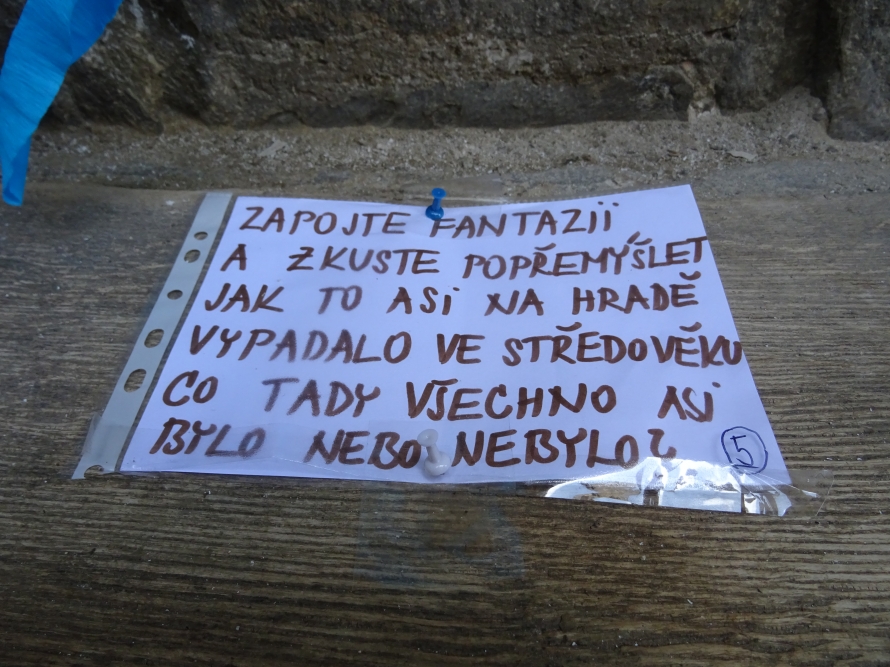 ZAPOJTE FANTAZII
A ZKUSTE POPŘEMÝŠLET
JAK TO ASI NA HRADĚ
VYPADALO VE STŘEDOVĚKU
CO TADY VŠECHNO ASI
BYLO NEBO NEBYLO?
5